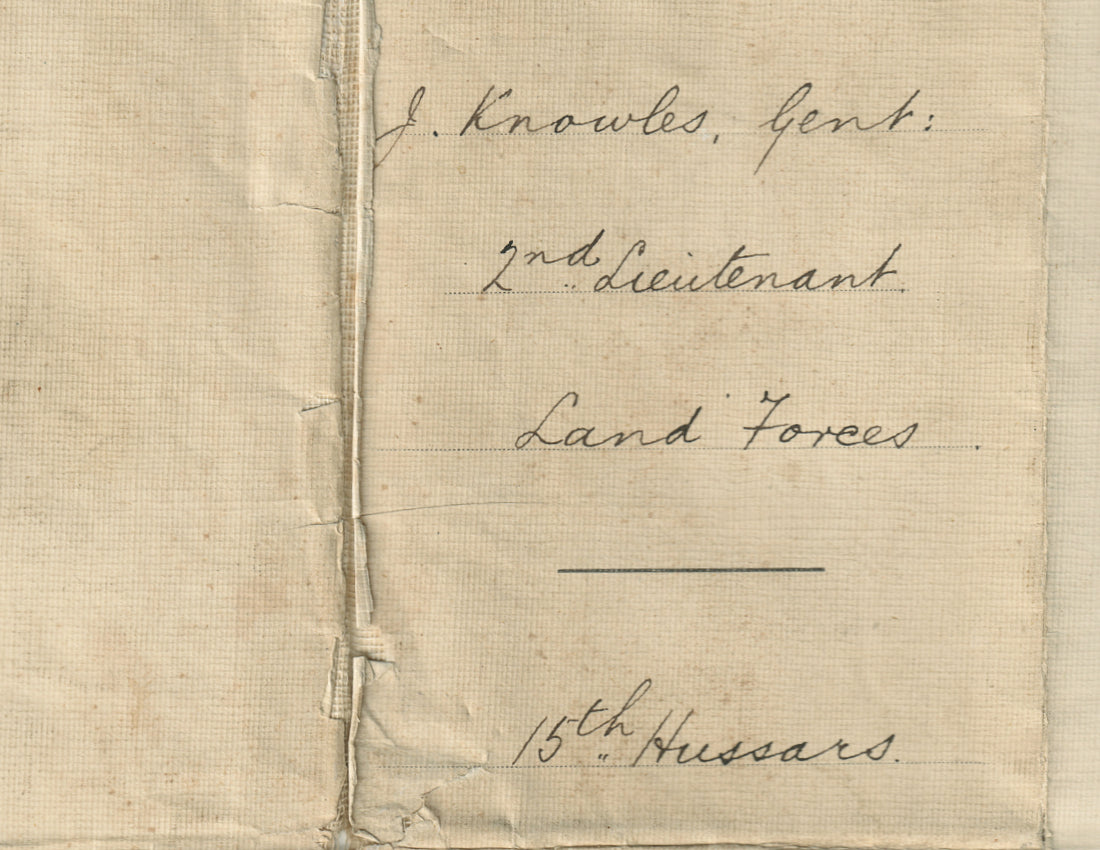 J. Knowles, Gent:
2nd Lieutenant.
Land Forces.
15th Hussars.